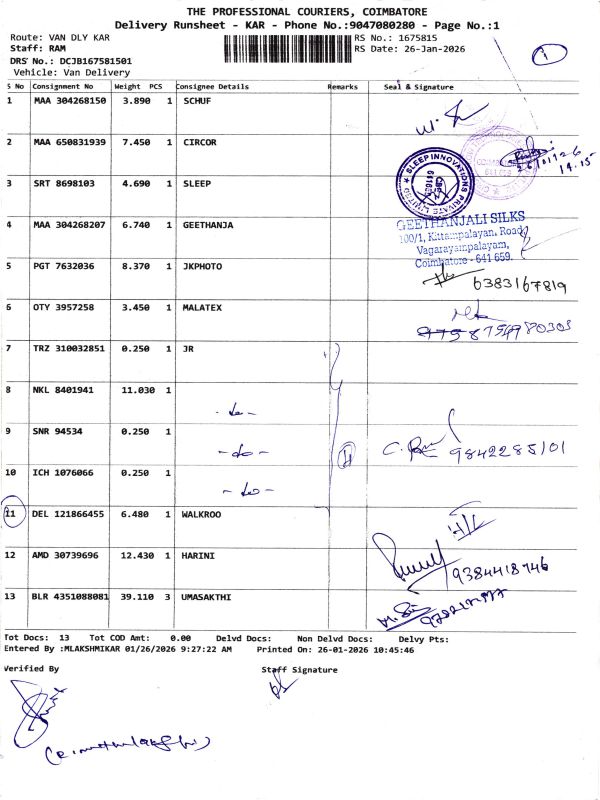 THE PROFESSIONAL COURIERS, COIMBATORE
Delivery Runsheet - KAR - Phone No.:9047080280 - Page No.:1
Route: VAN DLY KAR
RS No.: 1675815
Staff: RAM
RS Date: 26-Jan-2026
DRS No.: DCJB167581501
Vehicle: Van Delivery
1
S No Consignment No Weight PCS Consignee Details Remarks Seal & Signature
1 MAA 304268150 3.890 1 SCHUF
2 MAA 650831939 7.450 1 CIRCOR
26/1/26
14.15
3 SRT 8698103 4.690 1 SLEEP
SLEEP INNOVATIONS PRIVATE LIMITED
4 MAA 304268207 6.740 1 GEETHANJA
GEETHANJALI SILKS
100/1, Kittampalayan, Road
Vagarayampalayam,
Coimbatore - 641 659.
5 PGT 7632036 8.370 1 JKPHOTO
6383167819
6 OTY 3957258 3.450 1 MALATEX
7 TRZ 310032851 0.250 1 JR
8 NKL 8401941 11.030 1
-do-
9 SNR 94534 0.250 1
-do-
9842285101
10 ICH 1076066 0.250 1
-do-
11 DEL 121866455 6.480 1 WALKROO
12 AMD 30739696 12.430 1 HARINI
9384418746
13 BLR 4351088081 39.110 3 UMASAKTHI
Tot Docs: 13 Tot COD Amt: 0.00 Delvd Docs: Non Delvd Docs: Delvy Pts:
Entered By :MLAKSHMIKAR 01/26/2026 9:27:22 AM Printed On: 26-01-2026 10:45:46
Verified By Staff Signature